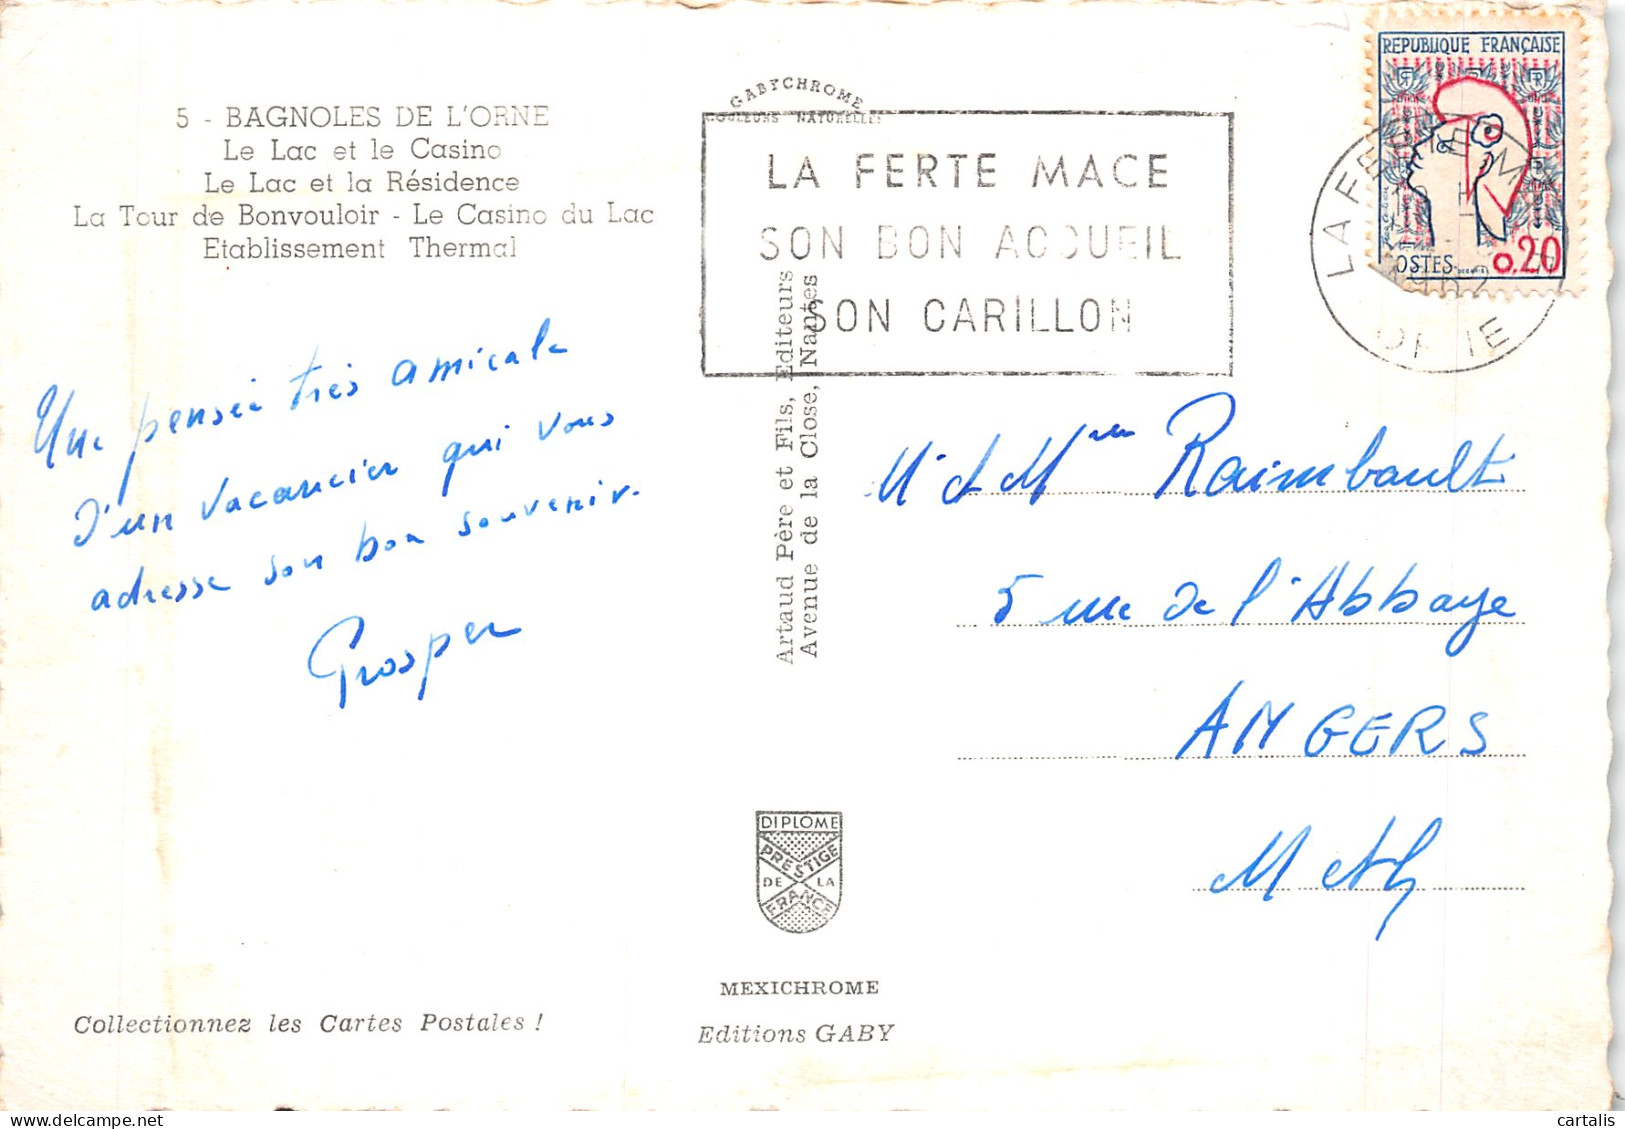 5 - BAGNOLES DE L'ORNE
Le Lac et le Casino
Le Lac et la Résidence
La Tour de Bonvouloir - Le Casino du Lac
Etablissement Thermal
Une pensée très amicale
d'un vacancier qui vous
adresse son bon souvenir.
Prosper
Collectionnez les Cartes Postales !
GABYCHROME
COULEURS NATURELLES
LA FERTE MACE
SON BON ACCUEIL
SON CARILLON
Artaud Père et Fils, Editeurs
Avenue de la Close, Nantes
DIPLOME
PRESTIGE
DE LA
FRANCE
MEXICHROME
Editions GABY
REPUBLIQUE FRANÇAISE
POSTES
0,20
LA FERTE MACE
ORNE
M et Mme Raimbault
5 rue de l'Abbaye
ANGERS
delcampe.net
cartalis